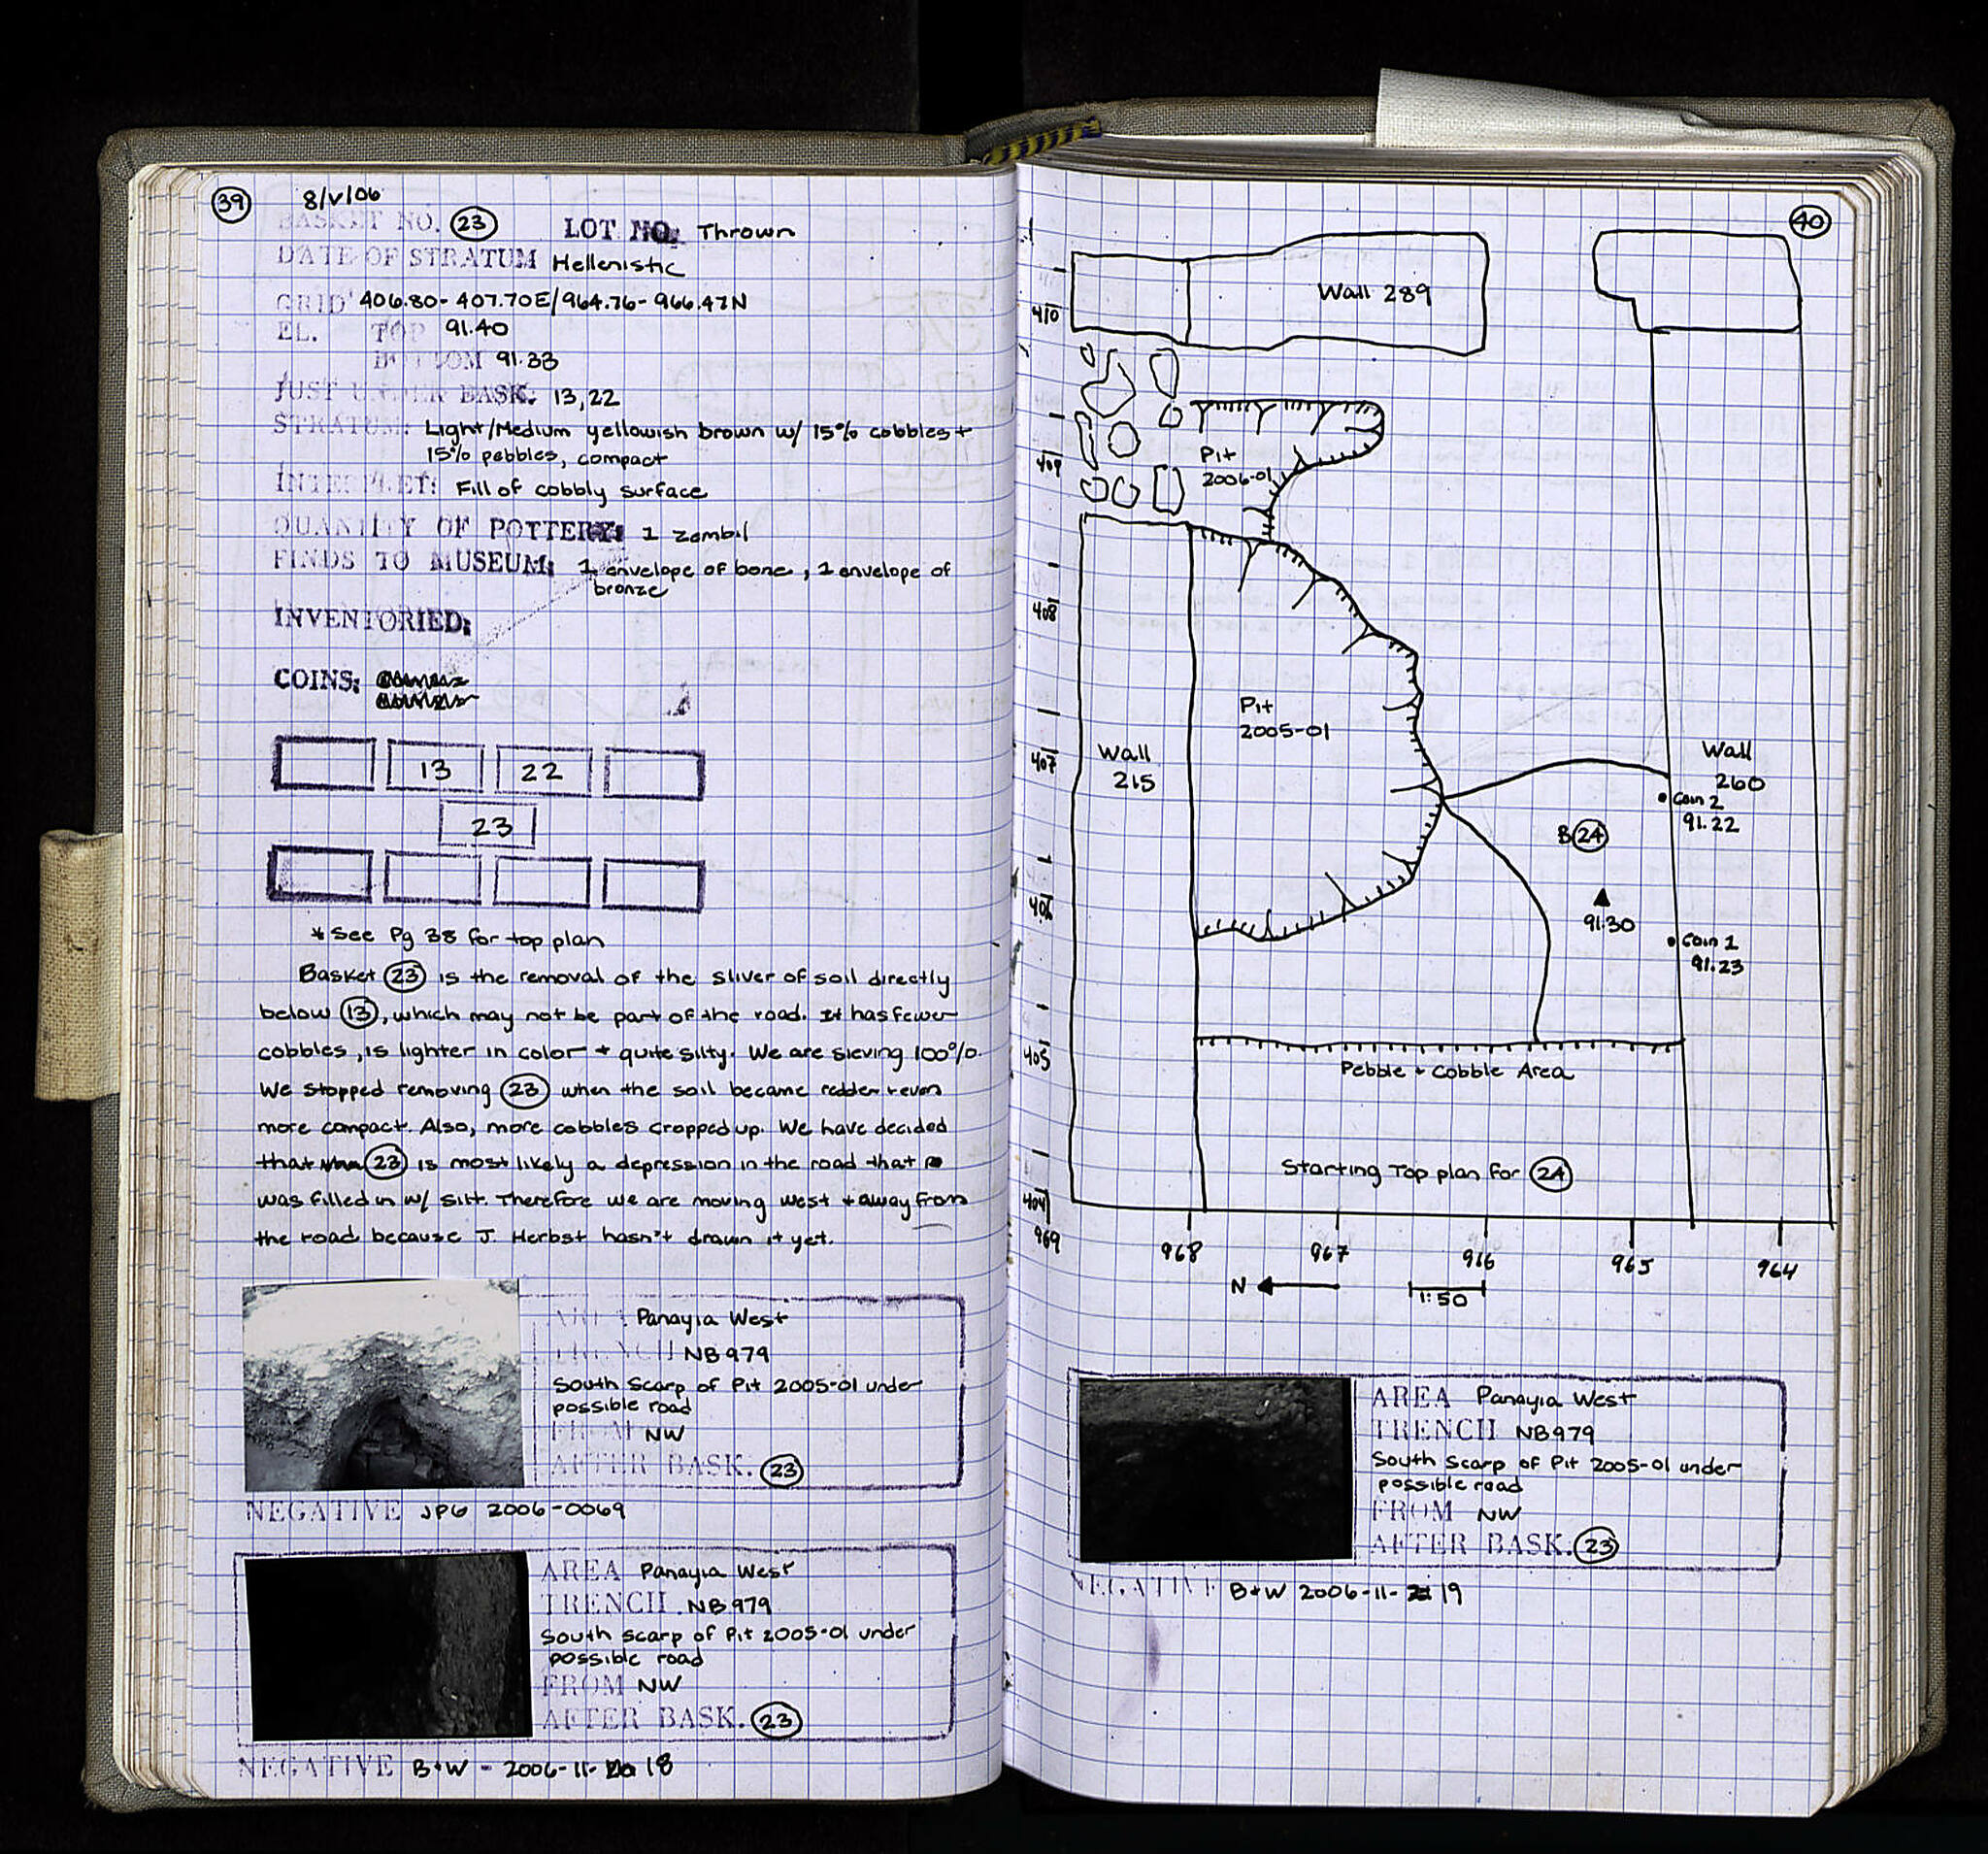 39
8/V/06
BASKET NO. 23 LOT NO: Thrown
DATE OF STRATUM Hellenistic
GRID 406.80-407.70E/964.76-966.47N
EL. TOP 91.40
BOTTOM 91.33
JUST UNDER BASK: 13,22
STRATUM: Light/Medium yellowish brown w/ 15% cobbles +
15% pebbles, compact
INTERPRET: Fill of cobbly surface
QUANTITY OF POTTERY: 1 zembil
FINDS TO MUSEUM: 1 envelope of bone, 1 envelope of
bronze
INVENTORIED:
COINS:
13 22
23
* See Pg 38 for top plan
Basket 23 is the removal of the sliver of soil directly
below 13, which may not be part of the road. It has fewer
cobbles, is lighter in color + quite silty. We are sieving 100%.
We stopped removing 23 when the soil became redder + even
more compact. Also, more cobbles cropped up. We have decided
that 23 is most likely a depression in the road that
was filled in w/ silt. Therefore we are moving west + away from
the road because J. Herbst hasn't drawn it yet.
AREA Panayia West
TRENCH NB979
South Scarp of Pit 2005-01 under
possible road
FROM NW
AFTER BASK. 23
NEGATIVE JPG 2006-0069
AREA Panayia West
TRENCH NB979
South scarp of Pit 2005-01 under
possible road
FROM NW
AFTER BASK. 23
NEGATIVE B+W - 2006-11- 18
40
Wall 289
410
409
Pit
2006-01
408
Pit
2005-01
407
Wall
215
Wall
260
Coin 2
91.22
B 24
406
91.30
Coin 1
91.23
405
Pebble + Cobble Area
Starting Top plan for 24
404
969 968 967 916 965 964
N 1:50
AREA Panayia West
TRENCH NB979
South Scarp of Pit 2005-01 under
possible road
FROM NW
AFTER BASK. 23
NEGATIVE B+W 2006-11- 19